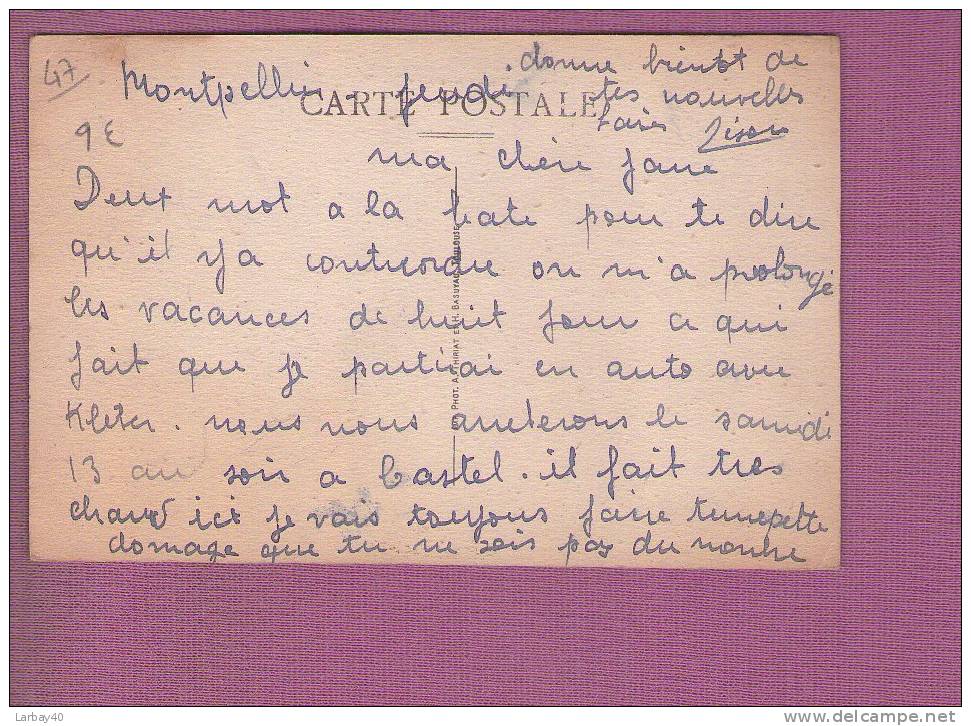 47
Montpellier. jeudi
CARTE POSTALE
9 €
ma chère Jane
Deux mot a la hate pour te dire
qu'il y a contreordre on m'a prolongé
les vacances de huit jour ce qui
fait que je partirai en auto avec
nous nous arreterons le samedi
13 au soir a Castel. il fait tres
chaud ici je vais toujours faire
domage que tu ne sois pas du nombre
donne bientot de
tes nouvelles
PHOT. A. THIRIAT ET H. BASUYAU, TOULOUSE
Larbay40